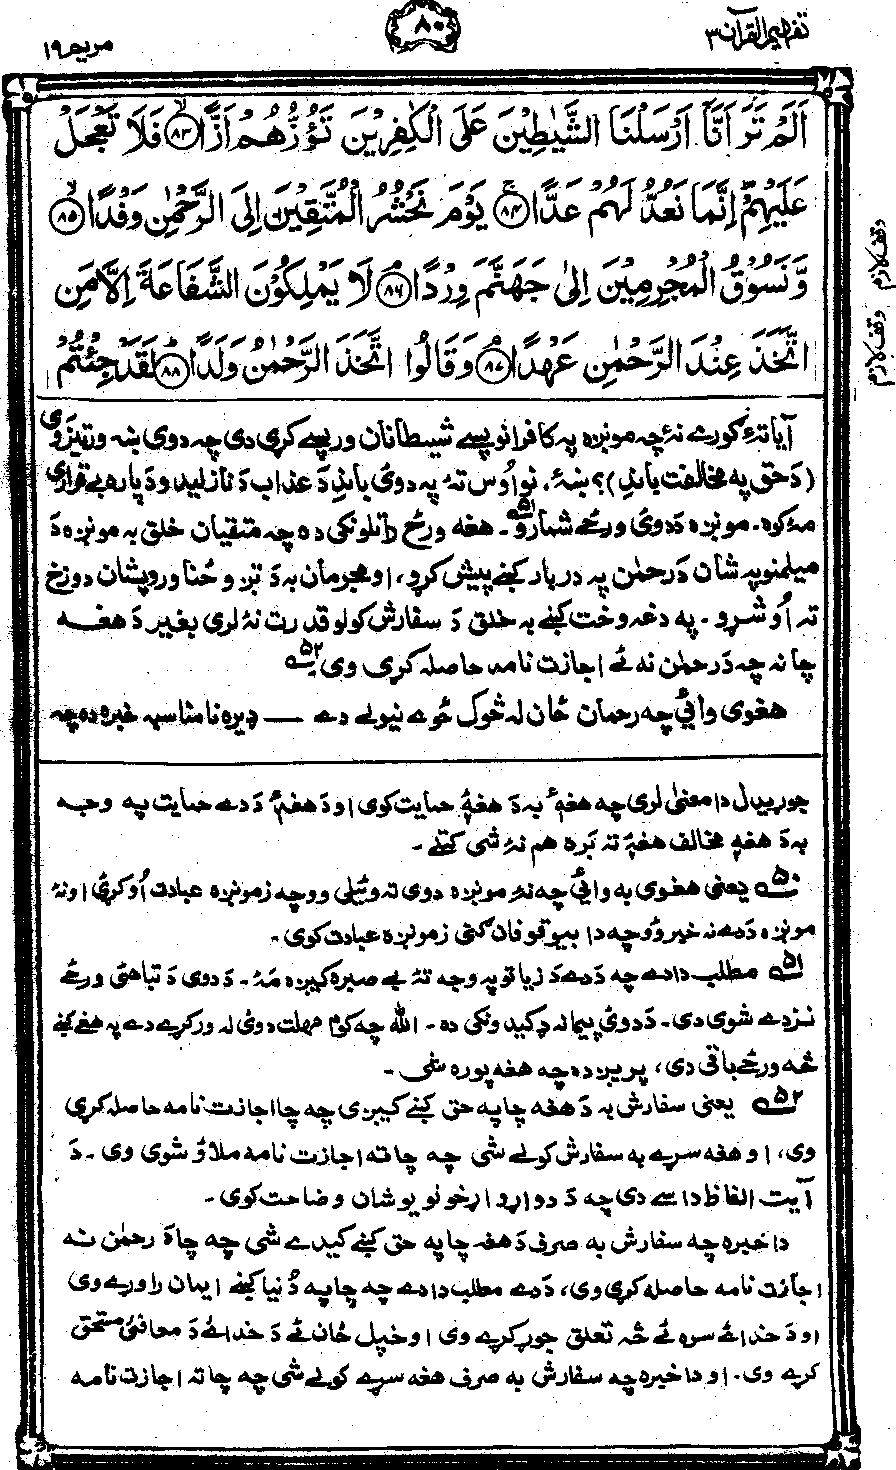 تفهيم القرآن ۳
۸۰
مريم ۱۹
اَلَمْ تَرَ اَنَّآ اَرْسَلْنَا الشَّيٰطِيْنَ عَلَى الْكٰفِرِيْنَ تَؤُزُّهُمْ اَزًّا ﴿۸۳﴾ فَلَا تَعْجَلْ
عَلَيْهِمْ اِنَّمَا نَعُدُّ لَهُمْ عَدًّا ﴿۸۴﴾ يَوْمَ نَحْشُرُ الْمُتَّقِيْنَ اِلَى الرَّحْمٰنِ وَفْدًا ﴿۸۵﴾
وَّنَسُوْقُ الْمُجْرِمِيْنَ اِلٰى جَهَنَّمَ وِرْدًا ﴿۸۶﴾ لَا يَمْلِكُوْنَ الشَّفَاعَةَ اِلَّا مَنِ
اتَّخَذَ عِنْدَ الرَّحْمٰنِ عَهْدًا ﴿۸۷﴾ وَقَالُوا اتَّخَذَ الرَّحْمٰنُ وَلَدًا ﴿۸۸﴾ لَقَدْ جِئْتُمْ
وقف لازم
وقف لازم
آيا تهٔ ګورے نهٔ چه مونږه په کافرانو پسے شيطانان ورپسے کړی دی چه دوی ښه وتيزوی
(دَ حق په مخالفت باندِ)؟ ښهٔ، نو اُوس تهٔ په دوی باندِ دَ عذاب دَ نازليدو دَ پاره بے قراری
مهٔ کوه. مونږه دَ دوی ورځے شمارو۵۱. هغه ورځ راتلونکی ده چه متقيان خلق به مونږه دَ
ميلمنو په شان دَ رحمٰن په دربار کښے پيش کړو، او مجرمان به دَ تږو ځناورو پشان دوزخ
ته اُوشړو. په دغه وخت کښے به خلق دَ سفارش کولو قدرت نهٔ لری بغير دَ هغه
چا نه چه دَ رحمٰن نه ئے اجازت نامه حاصله کړی وی۵۲
هغوی وائی چه رحمان ځان له څوک ځوے نيولے دے ـــ ډيره نامناسبه خبره ده چه
جوړيدل دا معنیٰ لری چه هغهٔ به دَ هغهٔ حمايت کوی او دَ هغهٔ دَ دے حمايت په وجه
به دَ هغهٔ مخالف هغهٔ ته بَره هم نهٔ شی کتلے.
۵۰ يعنی هغوی به وائی چه نه مونږه دوی ته وئيلی وو چه زمونږه عبادت اُوکړئ او نهٔ
مونږه دَ دے نه خبر وو چه دا بيوقوفان ګنی زمونږه عبادت کوی.
۵۱ مطلب دا دے چه دَ دے دَ زياتو په وجه تهٔ بے صبره کيږه مهٔ. دَ دوی دَ تباهئی ورځے
نزدے شوی دی. دَ دوی پيمانه ډکيدونکی ده. الله چه کوم مهلت دوی له ورکړے دے په هغے کښے
څه ورځے باقی دی، پريږده چه هغه پوره شی.
۵۲ يعنی سفارش به دَ هغه چا په حق کښے کيږی چه چا اجازت نامه حاصله کړی
وی، او هغه سړے به سفارش کولے شی چه چا ته اجازت نامه ملاؤ شوی وی. دَ
آيت الفاظ داسے دی چه دَ دواړو اړخونو يو شان وضاحت کوی.
دا خبره چه سفارش به صرف دَ هغه چا په حق کښے کيدے شی چه چا دَ رحمٰن نه
اجازت نامه حاصله کړی وی، دَ دے مطلب دا دے چه چا په دُنيا کښے ايمان راوړے وی
او دَ خدائے سره ئے څه تعلق جوړ کړے وی او خپل ځان ئے دَ خدائے دَ معافئی مستحق
کړے وی. او دا خبره چه سفارش به صرف هغه سړے کولے شی چه چا ته اجازت نامه